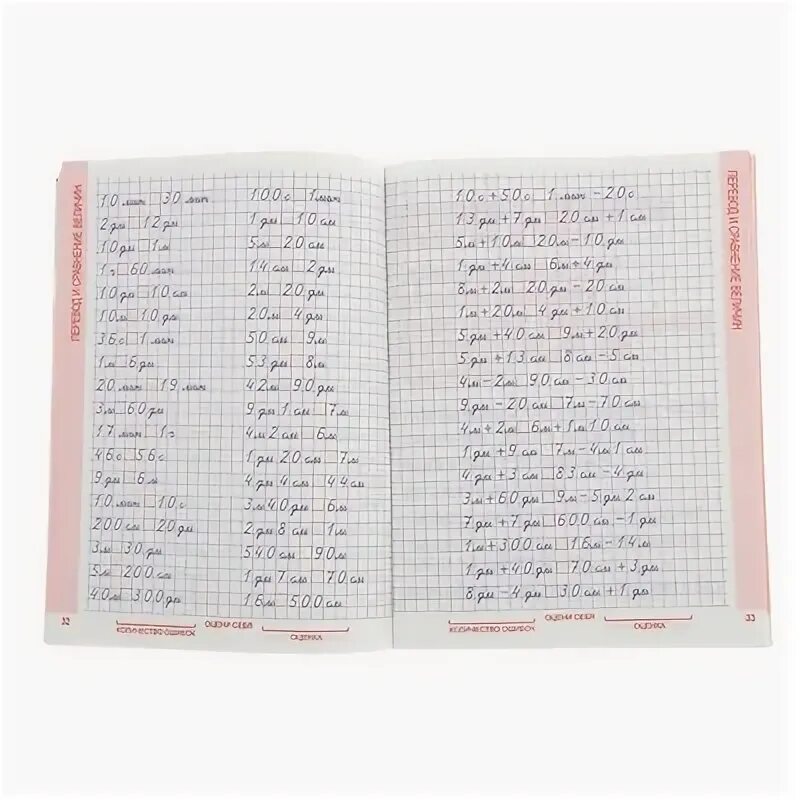 ПЕРЕВОД И СРАВНЕНИЕ ВЕЛИЧИН
10 мин □ 30 мин
2 дм □ 12 дм
10 дм □ 1 м
1 г □ 60 мин
10 дм □ 10 см
10 м □ 10 дм
36 с □ 1 мин
1 м □ 6 дм
20 мин □ 19 мин
3 м □ 60 дм
17 мин □ 1 г
46 с □ 56 с
9 дм □ 6 м
10 мин □ 10 с
200 см □ 20 дм
3 м □ 30 дм
5 м □ 200 см
40 м □ 300 дм
100 с □ 1 мин
1 дм □ 10 см
5 м □ 20 см
14 см □ 2 дм
2 м □ 20 дм
20 м □ 4 дм
50 см □ 9 м
53 дм □ 8 м
42 м □ 90 дм
9 дм 1 см □ 7 м
4 м 2 см □ 6 м
1 дм 20 см □ 7 м
4 дм 4 см □ 44 см
3 м 40 дм □ 6 м
2 дм 8 см □ 1 м
540 см □ 90 м
1 дм 7 см □ 70 см
16 м □ 500 см
32
КОЛИЧЕСТВО ОШИБОК
ОЦЕНИ СЕБЯ
ОЦЕНКА
10 с + 50 с □ 1 мин - 20 с
13 дм + 7 дм □ 20 см + 1 см
5 м + 10 м □ 20 м - 10 дм
1 дм + 4 см □ 6 м + 4 дм
8 м + 2 м □ 20 дм - 20 см
1 м + 20 м □ 4 дм + 10 см
5 дм + 40 см □ 9 м + 20 дм
5 дм + 13 см □ 8 см - 5 см
4 м - 2 м □ 90 см - 30 см
9 дм - 20 см □ 7 м - 70 см
4 м + 2 м □ 6 м + 1 м 10 см
1 дм + 9 см □ 7 м - 4 м 1 см
4 дм + 3 см □ 83 см - 4 дм
3 м + 60 дм □ 9 м - 5 дм 2 см
7 дм + 7 дм □ 600 см - 1 дм
1 м + 300 см □ 16 м - 14 м
1 дм + 40 дм □ 70 см + 3 дм
8 дм - 4 дм □ 30 см + 1 дм
КОЛИЧЕСТВО ОШИБОК
ОЦЕНИ СЕБЯ
ОЦЕНКА
33
ПЕРЕВОД И СРАВНЕНИЕ ВЕЛИЧИН